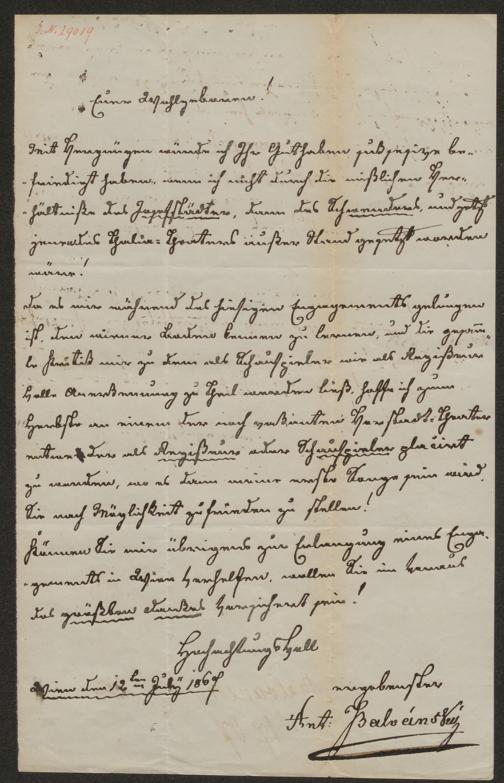 I. N. 29019
Euer Wohlgeboren!
Mit Vergnügen würde ich Ihr Guthaben be-
-friedigt haben, wenn ich nicht durch die mißlichen Ver-
-hältniße des Josefstädter, dann des Schwenders, und jetzt
jenes des Thalia-Theaters außer Stand gesetzt worden
wäre!
Da es mir während des hiesigen Engagements gelungen
ist, den wiener Boden kennen zu lernen, und die gesam̅-
te Kritik mir zu dem als Schauspieler wie als Regißeur
volle Anerkennung zu Theil werden ließ, hoffe ich zum
Herbste an einem der noch vakanten Vorstadt-Theater
entweder als Regißeur oder Schauspieler placirt
zu werden, wo es dann meine erste Sorge sein wird,
Sie nach Möglichkeit zufrieden zu stellen!
Können Sie mir übrigens zur Erlangung eines Enga-
-gements in Wien verhelfen, wollen Sie im Voraus
des größten Dankes versichert sein!
Hochachtungsvoll
Wien den 12ten July 1867
ergebenster
Ant: Balvánsky